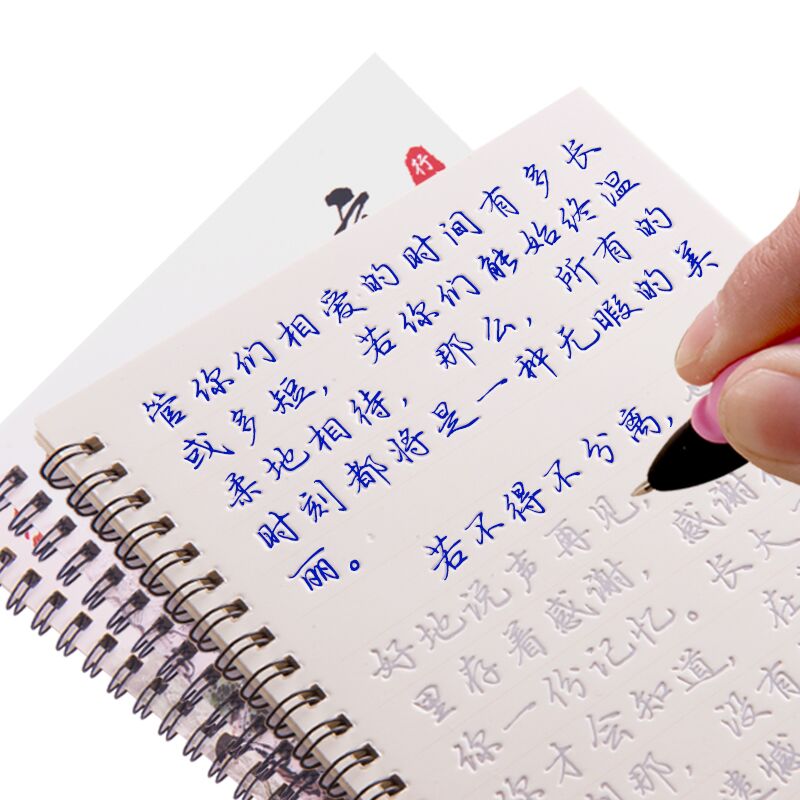 行
管你们相爱的时间有多长
或多短，若你们能始终温
柔地相待，那么，所有的
时刻都将是一种无暇的美
丽。
若不得不分离，
好地说声再见，
里存着感谢，感谢
你一份记忆。长大
你才会知道，在
那，没有
遗憾